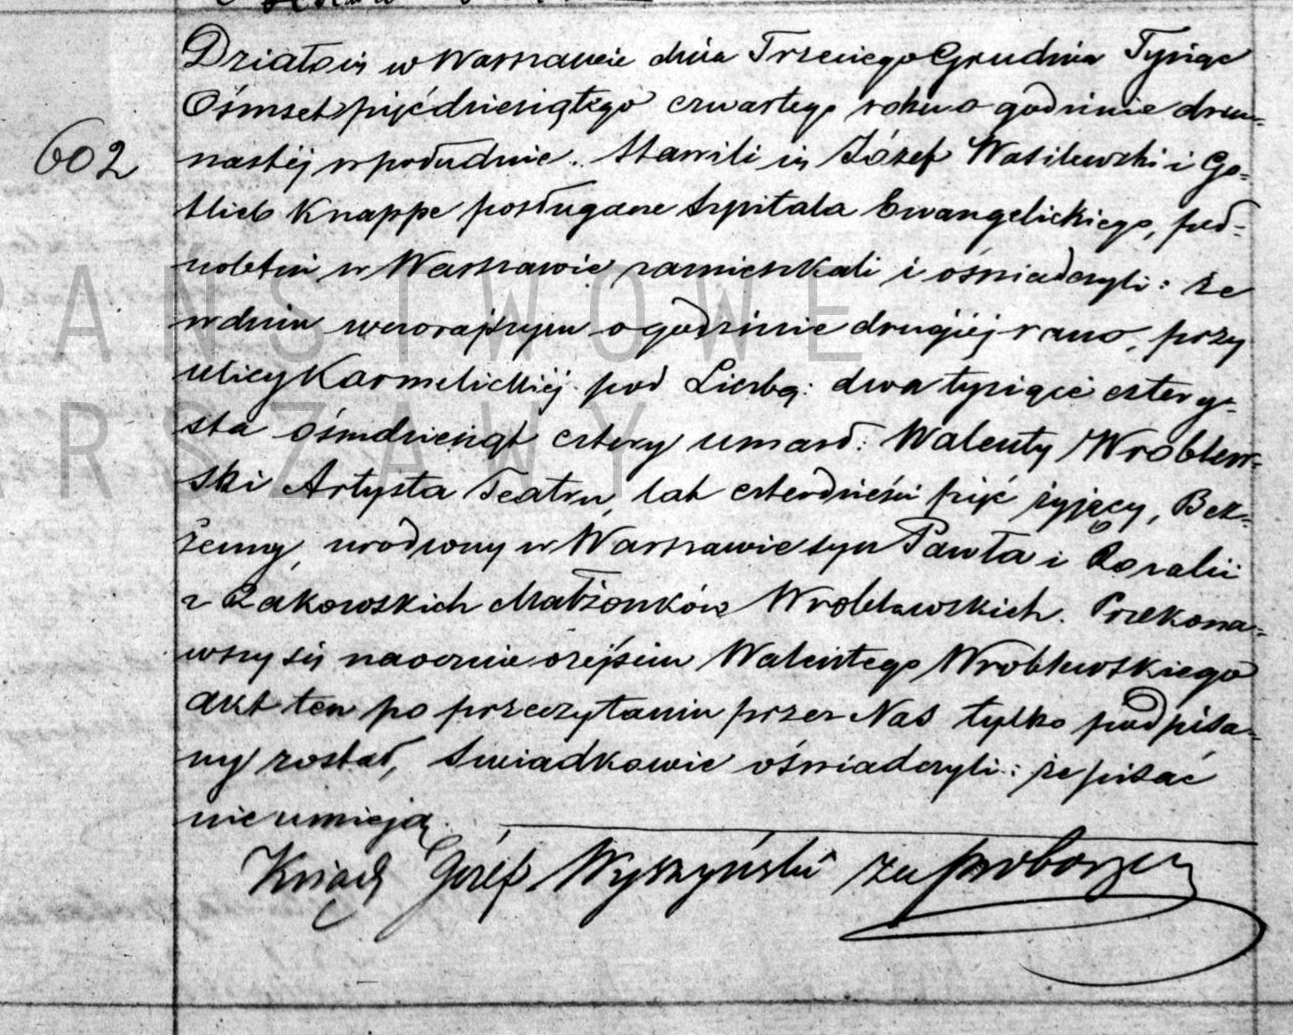 Działo się w Warszawie dnia Trzeciego Grudnia Tysiąc
Ośmset pięćdziesiątego czwartego roku o godzinie dwu-
602
nastéj w południe. Stawili się Józef Wasilewski i Go-
tlieb Knappe posługacze Szpitala Ewangelickiego, peł-
noletni w Warszawie zamieszkali i oświadczyli: że
w dniu wczorajszym o godzinie drugiéj rano, przy
ulicy Karmelickiéj pod Liczbą: dwa tysiące cztery-
sta ośmdziesiąt cztery umarł: Walenty Wroblew-
ski Artysta Teatru, lat czterdzieści pięć żyjący, Bez-
żenny, urodzony w Warszawie syn Pawła i Rozalii
z Rakowskich Małżonków Wroblewskich. Przekona-
wszy się naocznie o zejściu Walentego Wroblewskiego
akt ten po przeczytaniu przez Nas tylko podpisa-
ny został, Swiadkowie oświadczyli: że pisać
nie umieją.
Ksiądz Józef Wyszyński za proboszcza
PAŃSTWOWE
WARSZAWY